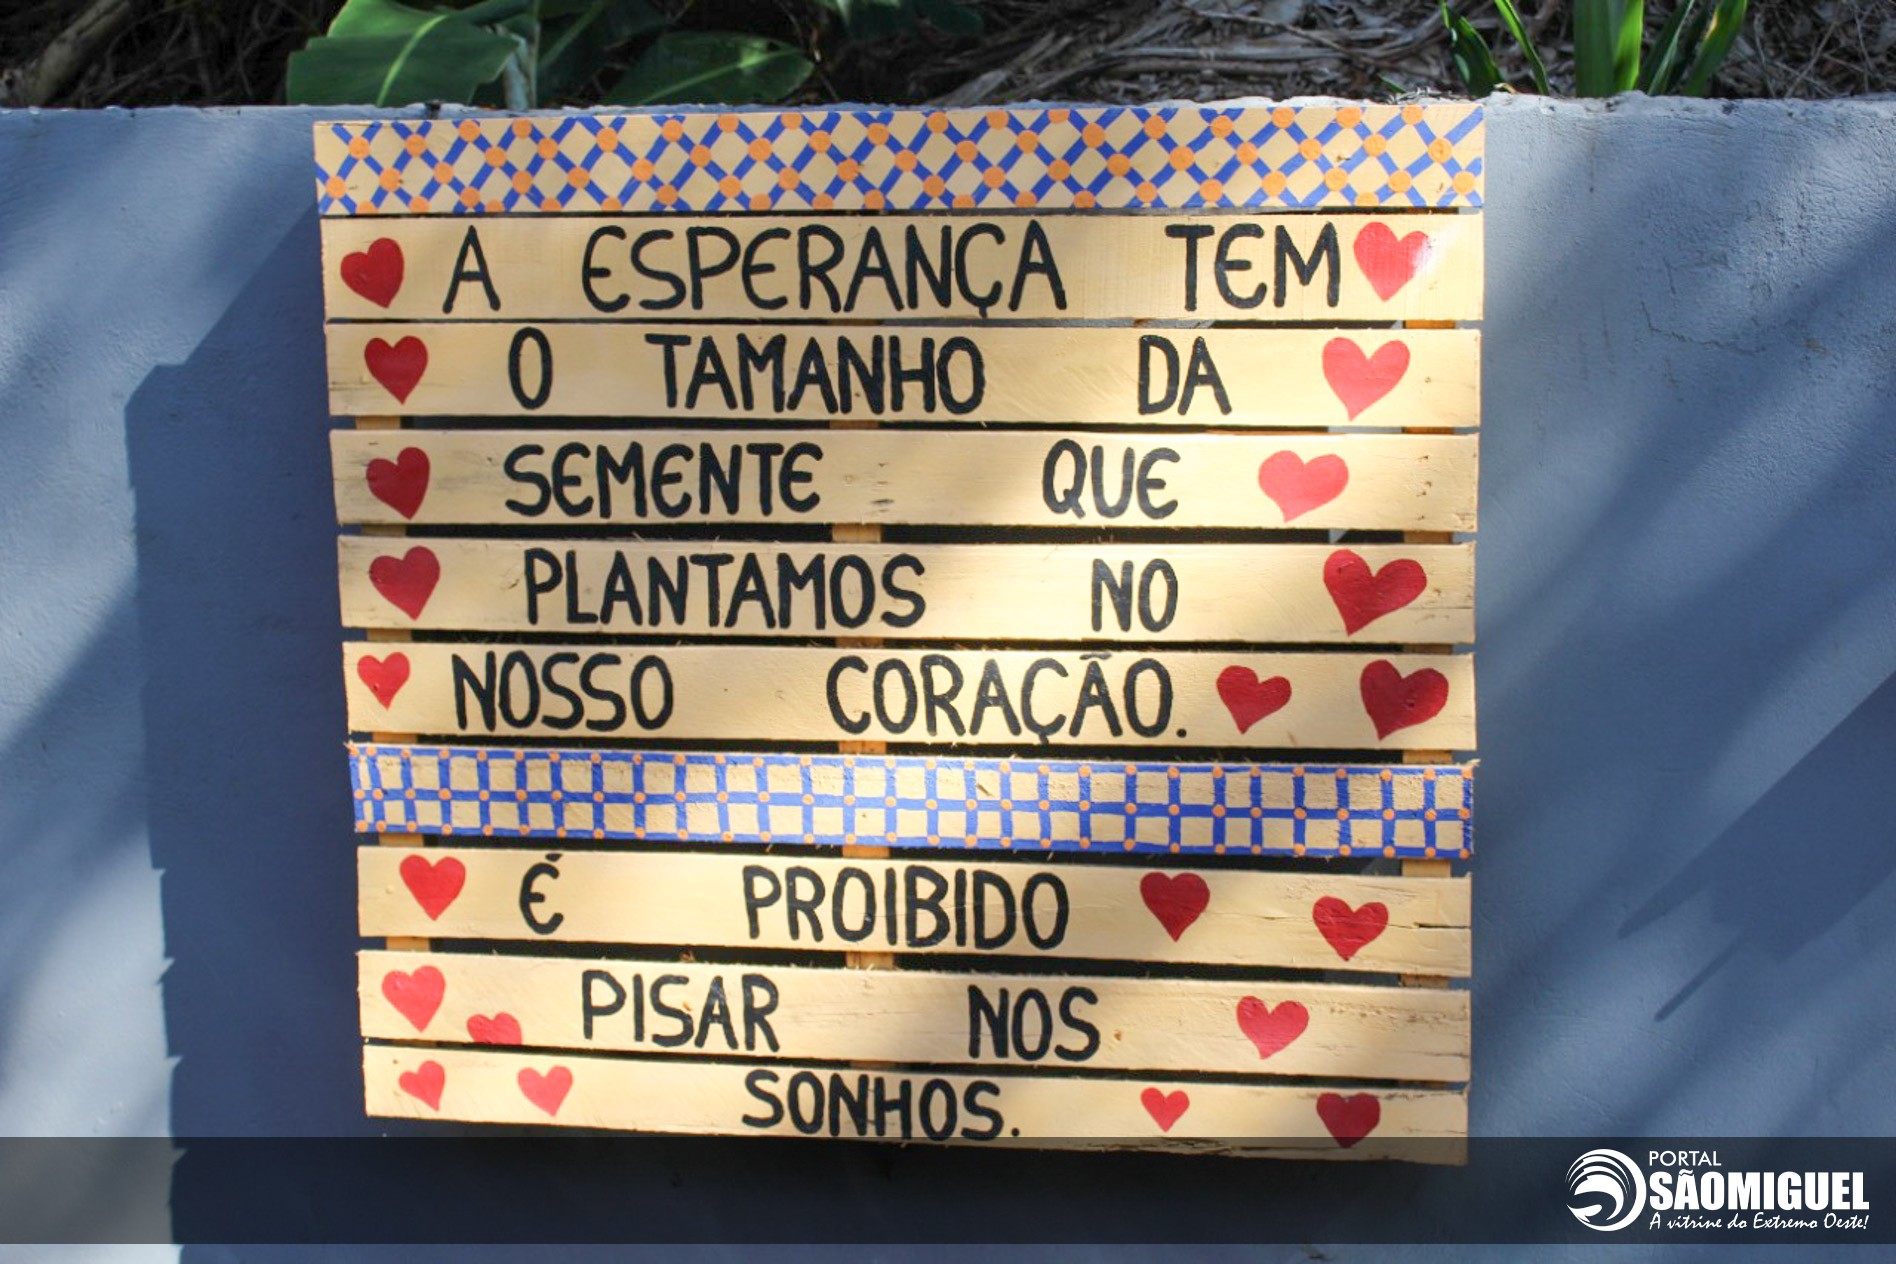 A ESPERANÇA TEM
O TAMANHO DA
SEMENTE QUE
PLANTAMOS NO
NOSSO CORAÇÃO.
É PROIBIDO
PISAR NOS
SONHOS.
PORTAL
SÃOMIGUEL
A vitrine do Extremo Oeste!